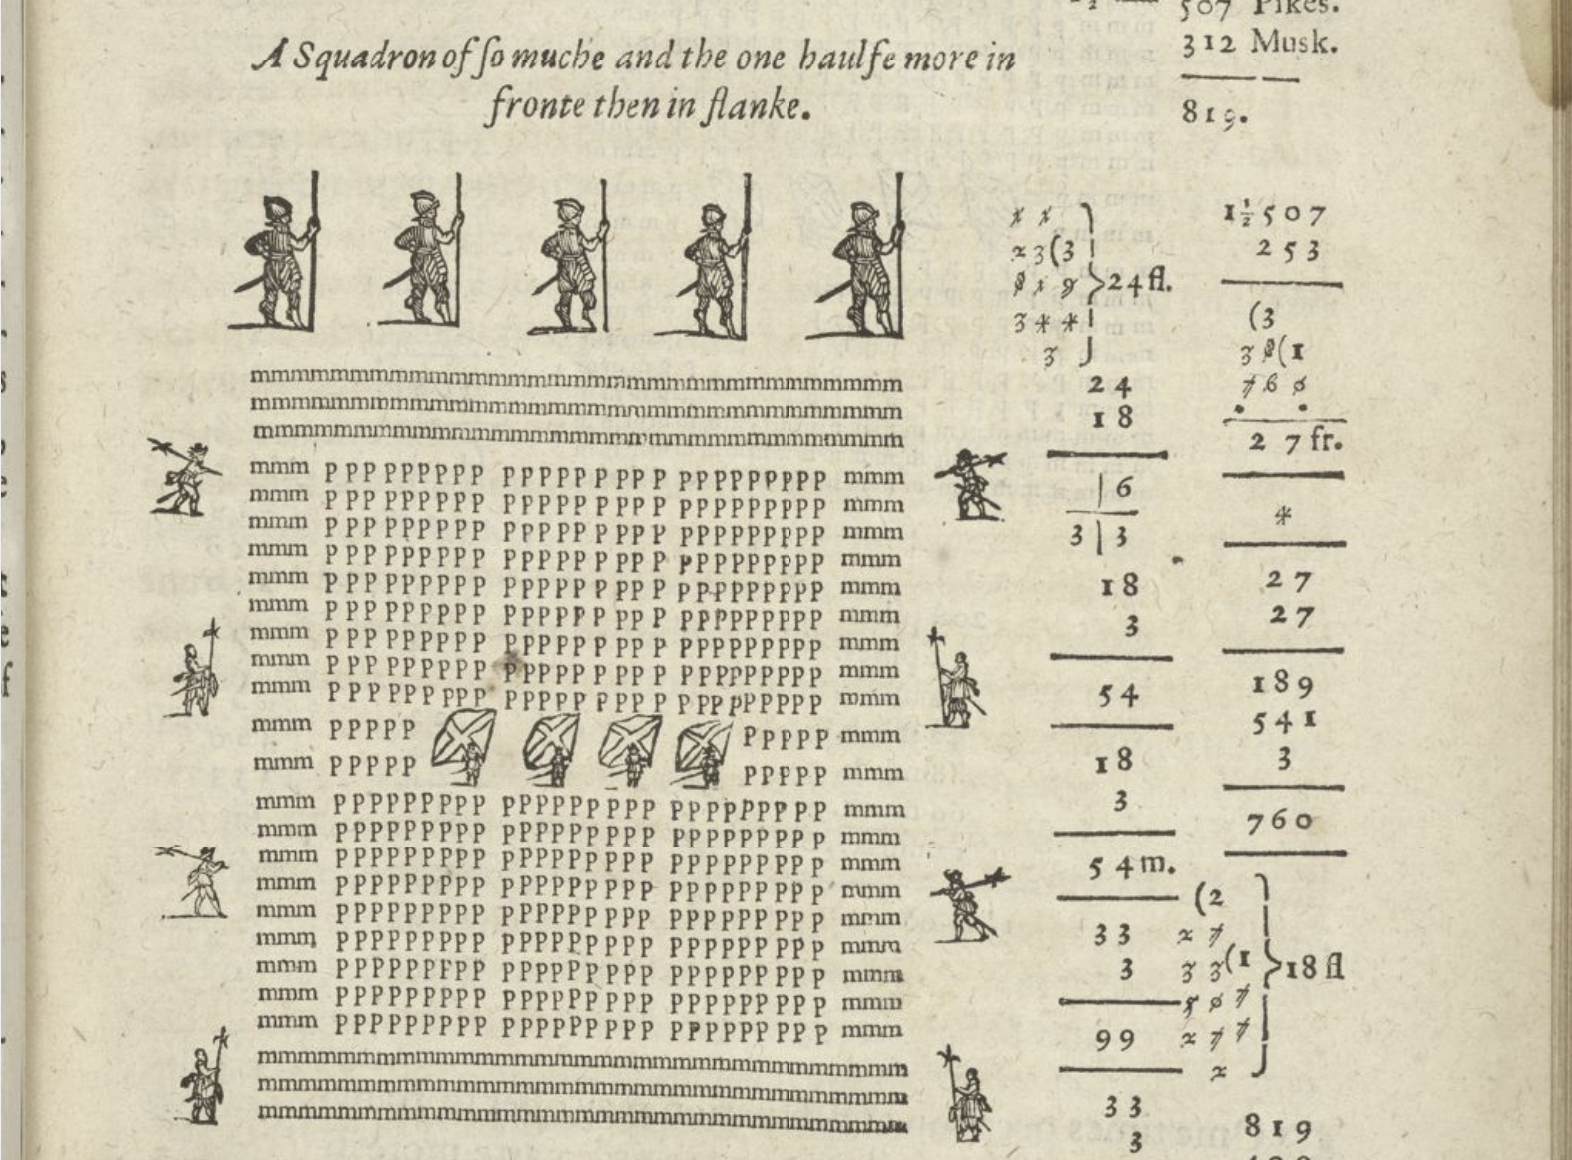 507 Pikes.
312 Musk.
819.
A Squadron of ſo muche and the one haulfe more in
fronte then in flanke.
mmmmmmmmmmmmmmmmmmmmmmmmmmmmmmmmm
mmmmmmmmmmmmmmmmmmmmmmmmmmmmmmmmm
mmmmmmmmmmmmmmmmmmmmmmmmmmmmmmmmm
mmm PPPPPPPPP PPPPPPPPP PPPPPPPPP mmm
mmm PPPPPPPPP PPPPPPPPP PPPPPPPPP mmm
mmm PPPPPPPPP PPPPPPPPP PPPPPPPPP mmm
mmm PPPPPPPPP PPPPPPPPP PPPPPPPPP mmm
mmm PPPPPPPPP PPPPPPPPP PPPPPPPPP mmm
mmm PPPPPPPPP PPPPPPPPP PPPPPPPPP mmm
mmm PPPPPPPPP PPPPPPPPP PPPPPPPPP mmm
mmm PPPPPPPPP PPPPPPPPP PPPPPPPPP mmm
mmm PPPPPPPPP PPPPPPPPP PPPPPPPPP mmm
mmm PPPPP PPPPP mmm
mmm PPPPP PPPPP mmm
mmm PPPPPPPPP PPPPPPPPP PPPPPPPPP mmm
mmm PPPPPPPPP PPPPPPPPP PPPPPPPPP mmm
mmm PPPPPPPPP PPPPPPPPP PPPPPPPPP mmm
mmm PPPPPPPPP PPPPPPPPP PPPPPPPPP mmm
mmm PPPPPPPPP PPPPPPPPP PPPPPPPPP mmm
mmm PPPPPPPPP PPPPPPPPP PPPPPPPPP mmm
mmm PPPPPPPPP PPPPPPPPP PPPPPPPPP mmm
mmm PPPPPPPPP PPPPPPPPP PPPPPPPPP mmm
mmm PPPPPPPPP PPPPPPPPP PPPPPPPPP mmm
mmmmmmmmmmmmmmmmmmmmmmmmmmmmmmmmm
mmmmmmmmmmmmmmmmmmmmmmmmmmmmmmmmm
mmmmmmmmmmmmmmmmmmmmmmmmmmmmmmmmm
1 1
23(3
819
344
3
24 fl.
24
18
6
3 3
18
3
54
18
3
54 m.
33
3
99
33
3
1½ 507
253
(3
38(1
760
27 fr.
*
27
27
189
541
3
760
(2
27
33(1
507
277
2
18 fl
819